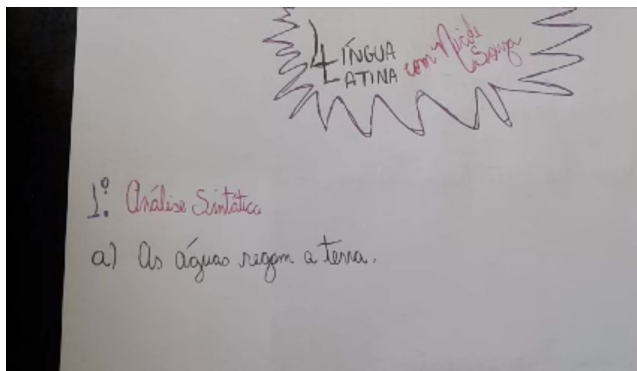 LÍNGUA
LATINA com Neide Souza
1º. Análise Sintática
a) As águas regam a terra.